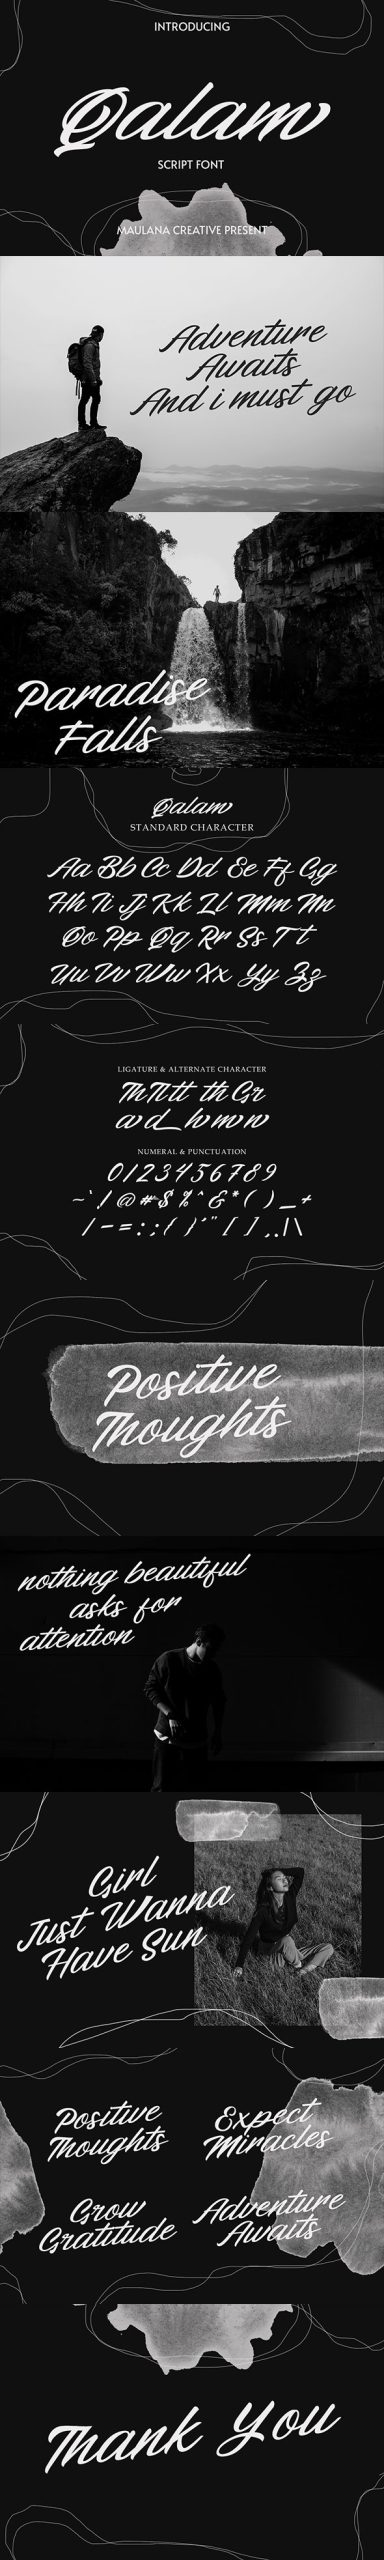 INTRODUCING
Qalam
SCRIPT FONT
MAULANA CREATIVE PRESENT
Adventure
Awaits
And i must go
Paradise
Falls
Qalam
STANDARD CHARACTER
Aa Bb Cc Dd Ee Ff Gg
Hh Ii Jj Kk Ll Mm Nn
Oo Pp Qq Rr Ss Tt
Uu Vv Ww Xx Yy Zz
LIGATURE & ALTERNATE CHARACTER
Th Tt tt th Gr
a d_ h m n
NUMERAL & PUNCTUATION
0123456789
~`!@#$%^&*()_+
/-=:;{}'"[],.|\
Positive
Thoughts
nothing beautiful
asks for
attention
Girl
Just Wanna
Have Sun
Positive
Thoughts
Expect
Miracles
Grow
Gratitude
Adventure
Awaits
Thank You